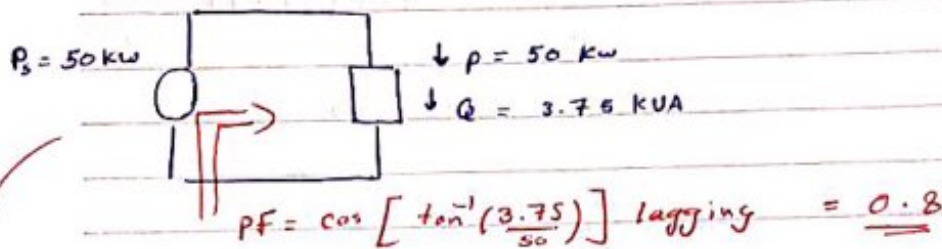 Ps = 50 kw
↓ P = 50 kw
↓ Q = 3.75 KUA
pf = cos [ tan⁻¹ (3.75/50) ] lagging = 0.8